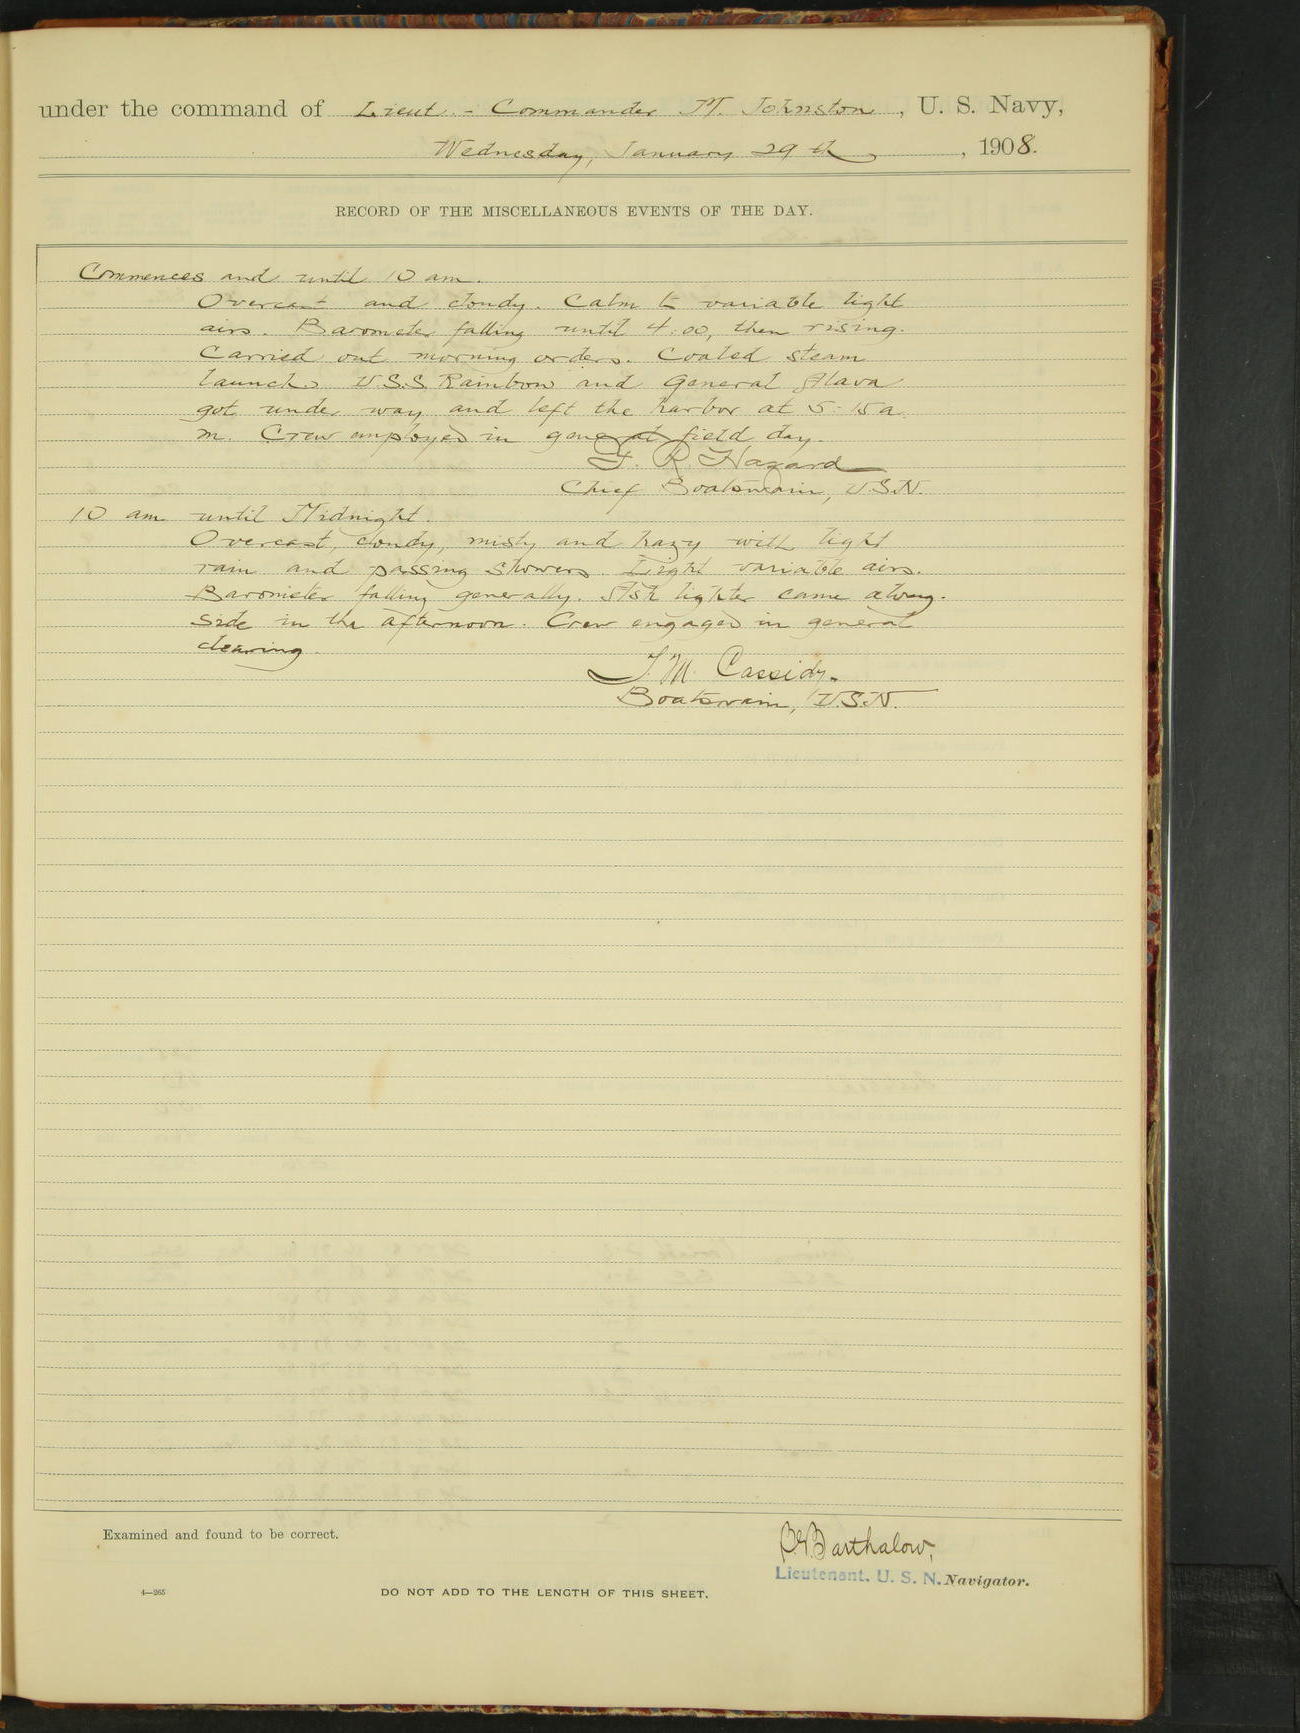 under the command of Lieut.-Commander M. Johnston, U. S. Navy,
Wednesday, January 29th, 1908.
RECORD OF THE MISCELLANEOUS EVENTS OF THE DAY.
Commences and until 10 am.
Overcast and cloudy. Calm to variable light
airs. Barometer falling until 4:00, then rising.
Carried out morning orders. Coaled steam
launch. U.S.S Rainbow and General Alava
got under way and left the harbor at 5:15 a.
m. Crew employed in general field day.
F. R. Hazard
Chief Boatswain, U.S.N.
10 am until Midnight.
Overcast, cloudy, misty and hazy with light
rain and passing showers. Light variable airs.
Barometer falling generally. Ash lighter came along-
side in the afternoon. Crew engaged in general
cleaning.
T. M. Cassidy.
Boatswain, U.S.N.
Examined and found to be correct.
Barthalow,
Lieutenant. U. S. N. Navigator.
4—265
DO NOT ADD TO THE LENGTH OF THIS SHEET.